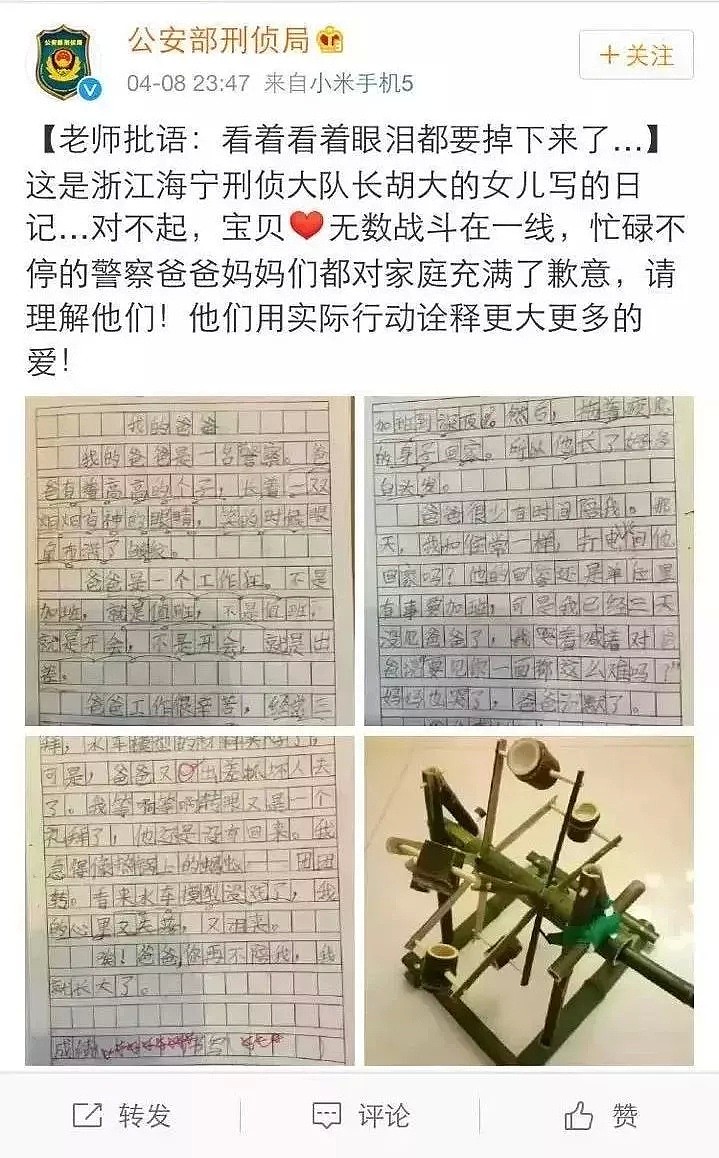 公安部刑侦局
04-08 23:47 来自小米手机5
+关注
【老师批语：看着看着眼泪都要掉下来了...】
这是浙江海宁刑侦大队长胡大的女儿写的日
记...对不起，宝贝❤无数战斗在一线，忙碌不
停的警察爸爸妈妈们都对家庭充满了歉意，请
理解他们！他们用实际行动诠释更大更多的
爱！
我的爸爸
我的爸爸是一名警察。爸
爸有着高高的个子，长着一双
炯炯有神的眼睛，笑的时候眼
角布满了
爸爸是一个工作狂。不是
加班，就是值班，不是值班，
就是开会，不是开会，就是出
差。
爸爸工作很辛苦，经常三
加班到深夜。然后，拖着疲惫
的身子回家。所以他长了好多
白头发。
爸爸很少有时间陪我。那
天，我和往常一样，打电问他
回家吗？他的回答还是单位里
有事要加班，可是我已经三天
没见爸爸了，我哭着喊着对爸
爸说"要见你一面都这么难吗？"
妈妈也哭了，爸爸沉默了。
样，水车模型的材料
可是，爸爸又出差抓坏人去
了。我等啊等啊转眼又是一个
礼拜了，他还是没有回来。我
急得像热锅上的蚂蚁——团团
转。看来水车模型没戏了，我
的心里又失落，又
唉！爸爸，你再不陪我，我
就长大了。
成绩
转发
评论
赞